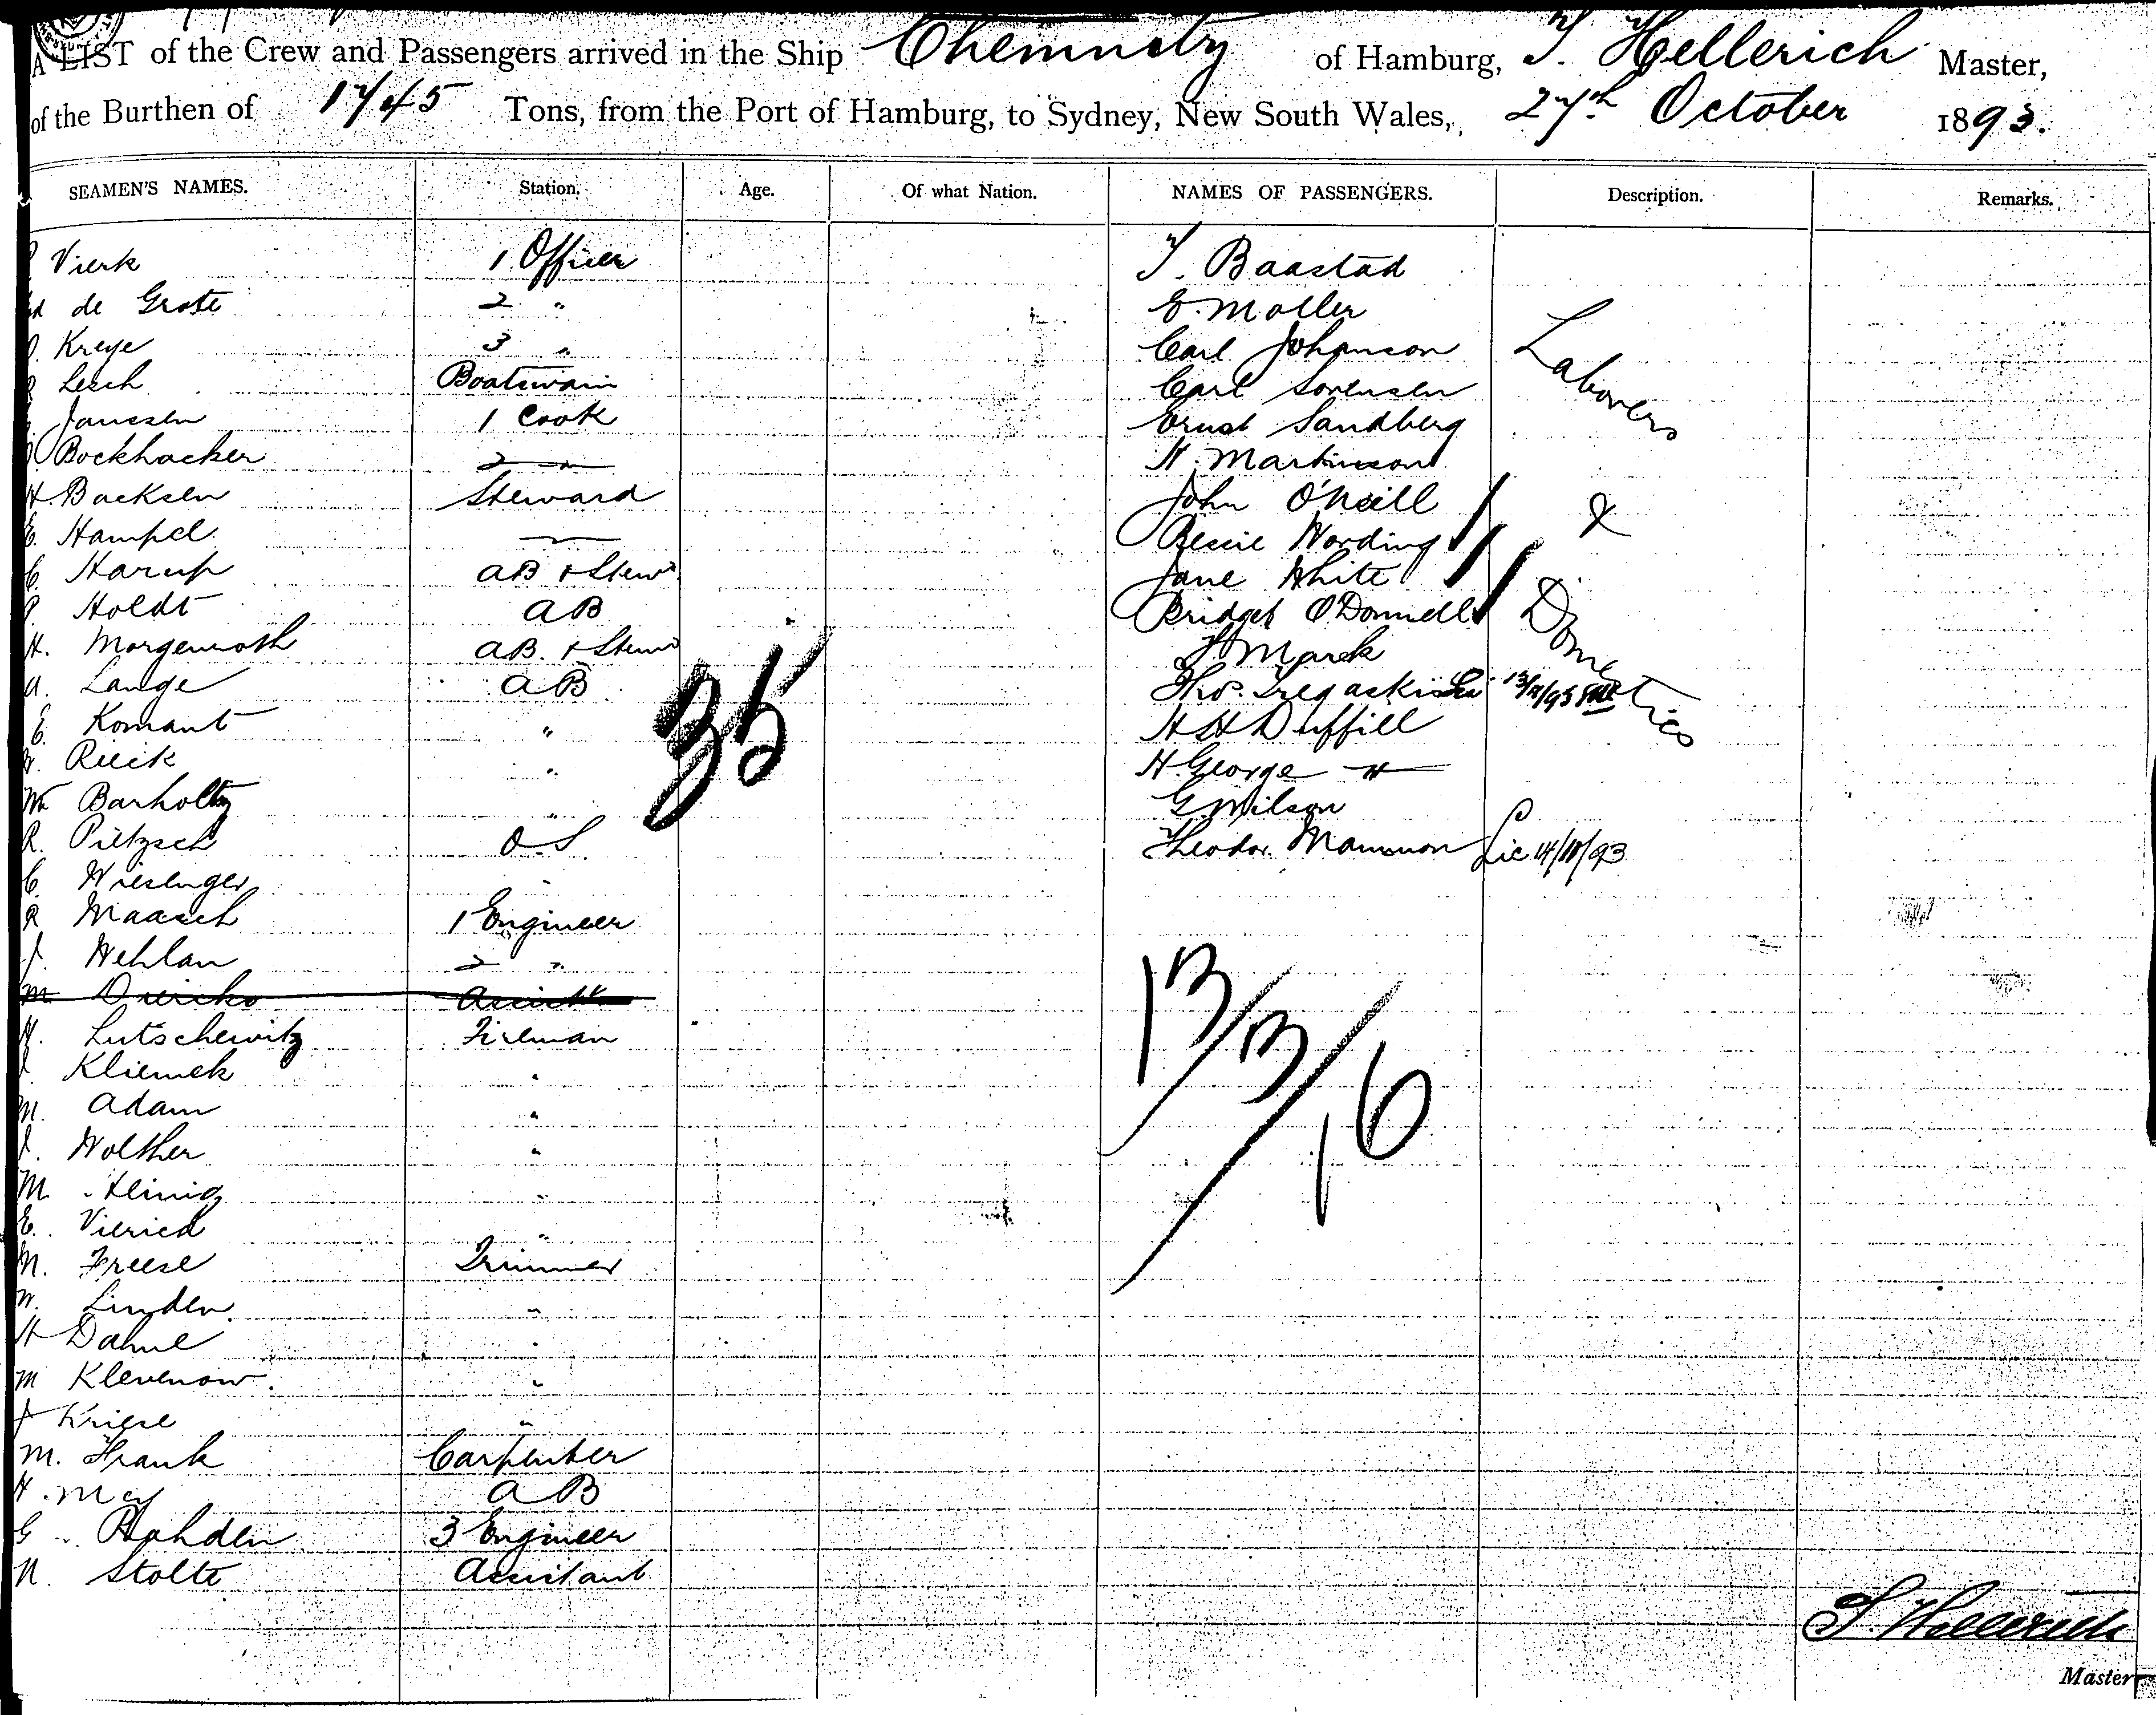 A LIST of the Crew and Passengers arrived in the Ship Chemnitz of Hamburg, T. Hellerich Master,
of the Burthen of 1745 Tons, from the Port of Hamburg, to Sydney, New South Wales, 27th October 1893.
SEAMEN'S NAMES. Station. Age. Of what Nation. NAMES OF PASSENGERS. Description. Remarks.
Vierk 1 Officer T. Baastad
de Grote 2 " E. Moller
Kreye 3 " Carl Johanson
Lesch Boatswain Carl Sorensen
Janssen 1 Cook Ernst Sandberg
Bockhacker 2 " N. Martinson
Laborers
H. Backsen Steward John O'Neill
&
E. Hampel " Bessie Wording
C. Harup AB & Stewd Jane White
P. Holdt AB Bridget O'Donnell
Domestics
H. Morgenroth AB. & Stewd Marck
A. Lange AB Thos. Tregaskis
35
E. Komant " H H Duffill
Rieik " H. George "
Wm Barholtz " G. Wilson
R. Pietzsch O.S. Theodor Mammon Lic 14/10/93
C. Wiesenger "
R Maasch 1 Engineer
J. Wehlan 2 "
M Diercks Assistt
H. Lutschewitz Fireman
13/3/16
Kliemek "
M. Adam "
J. Wolther "
M. Heinig "
E. Vierich "
M. Freese Trimmer
W. Linden "
H Dahne "
M Klevenow. "
J Kriese "
M. Frank Carpenter
H. May AB
G. Rohden 3 Engineer
N. Stolte Assistant
T. Hellerich
Master